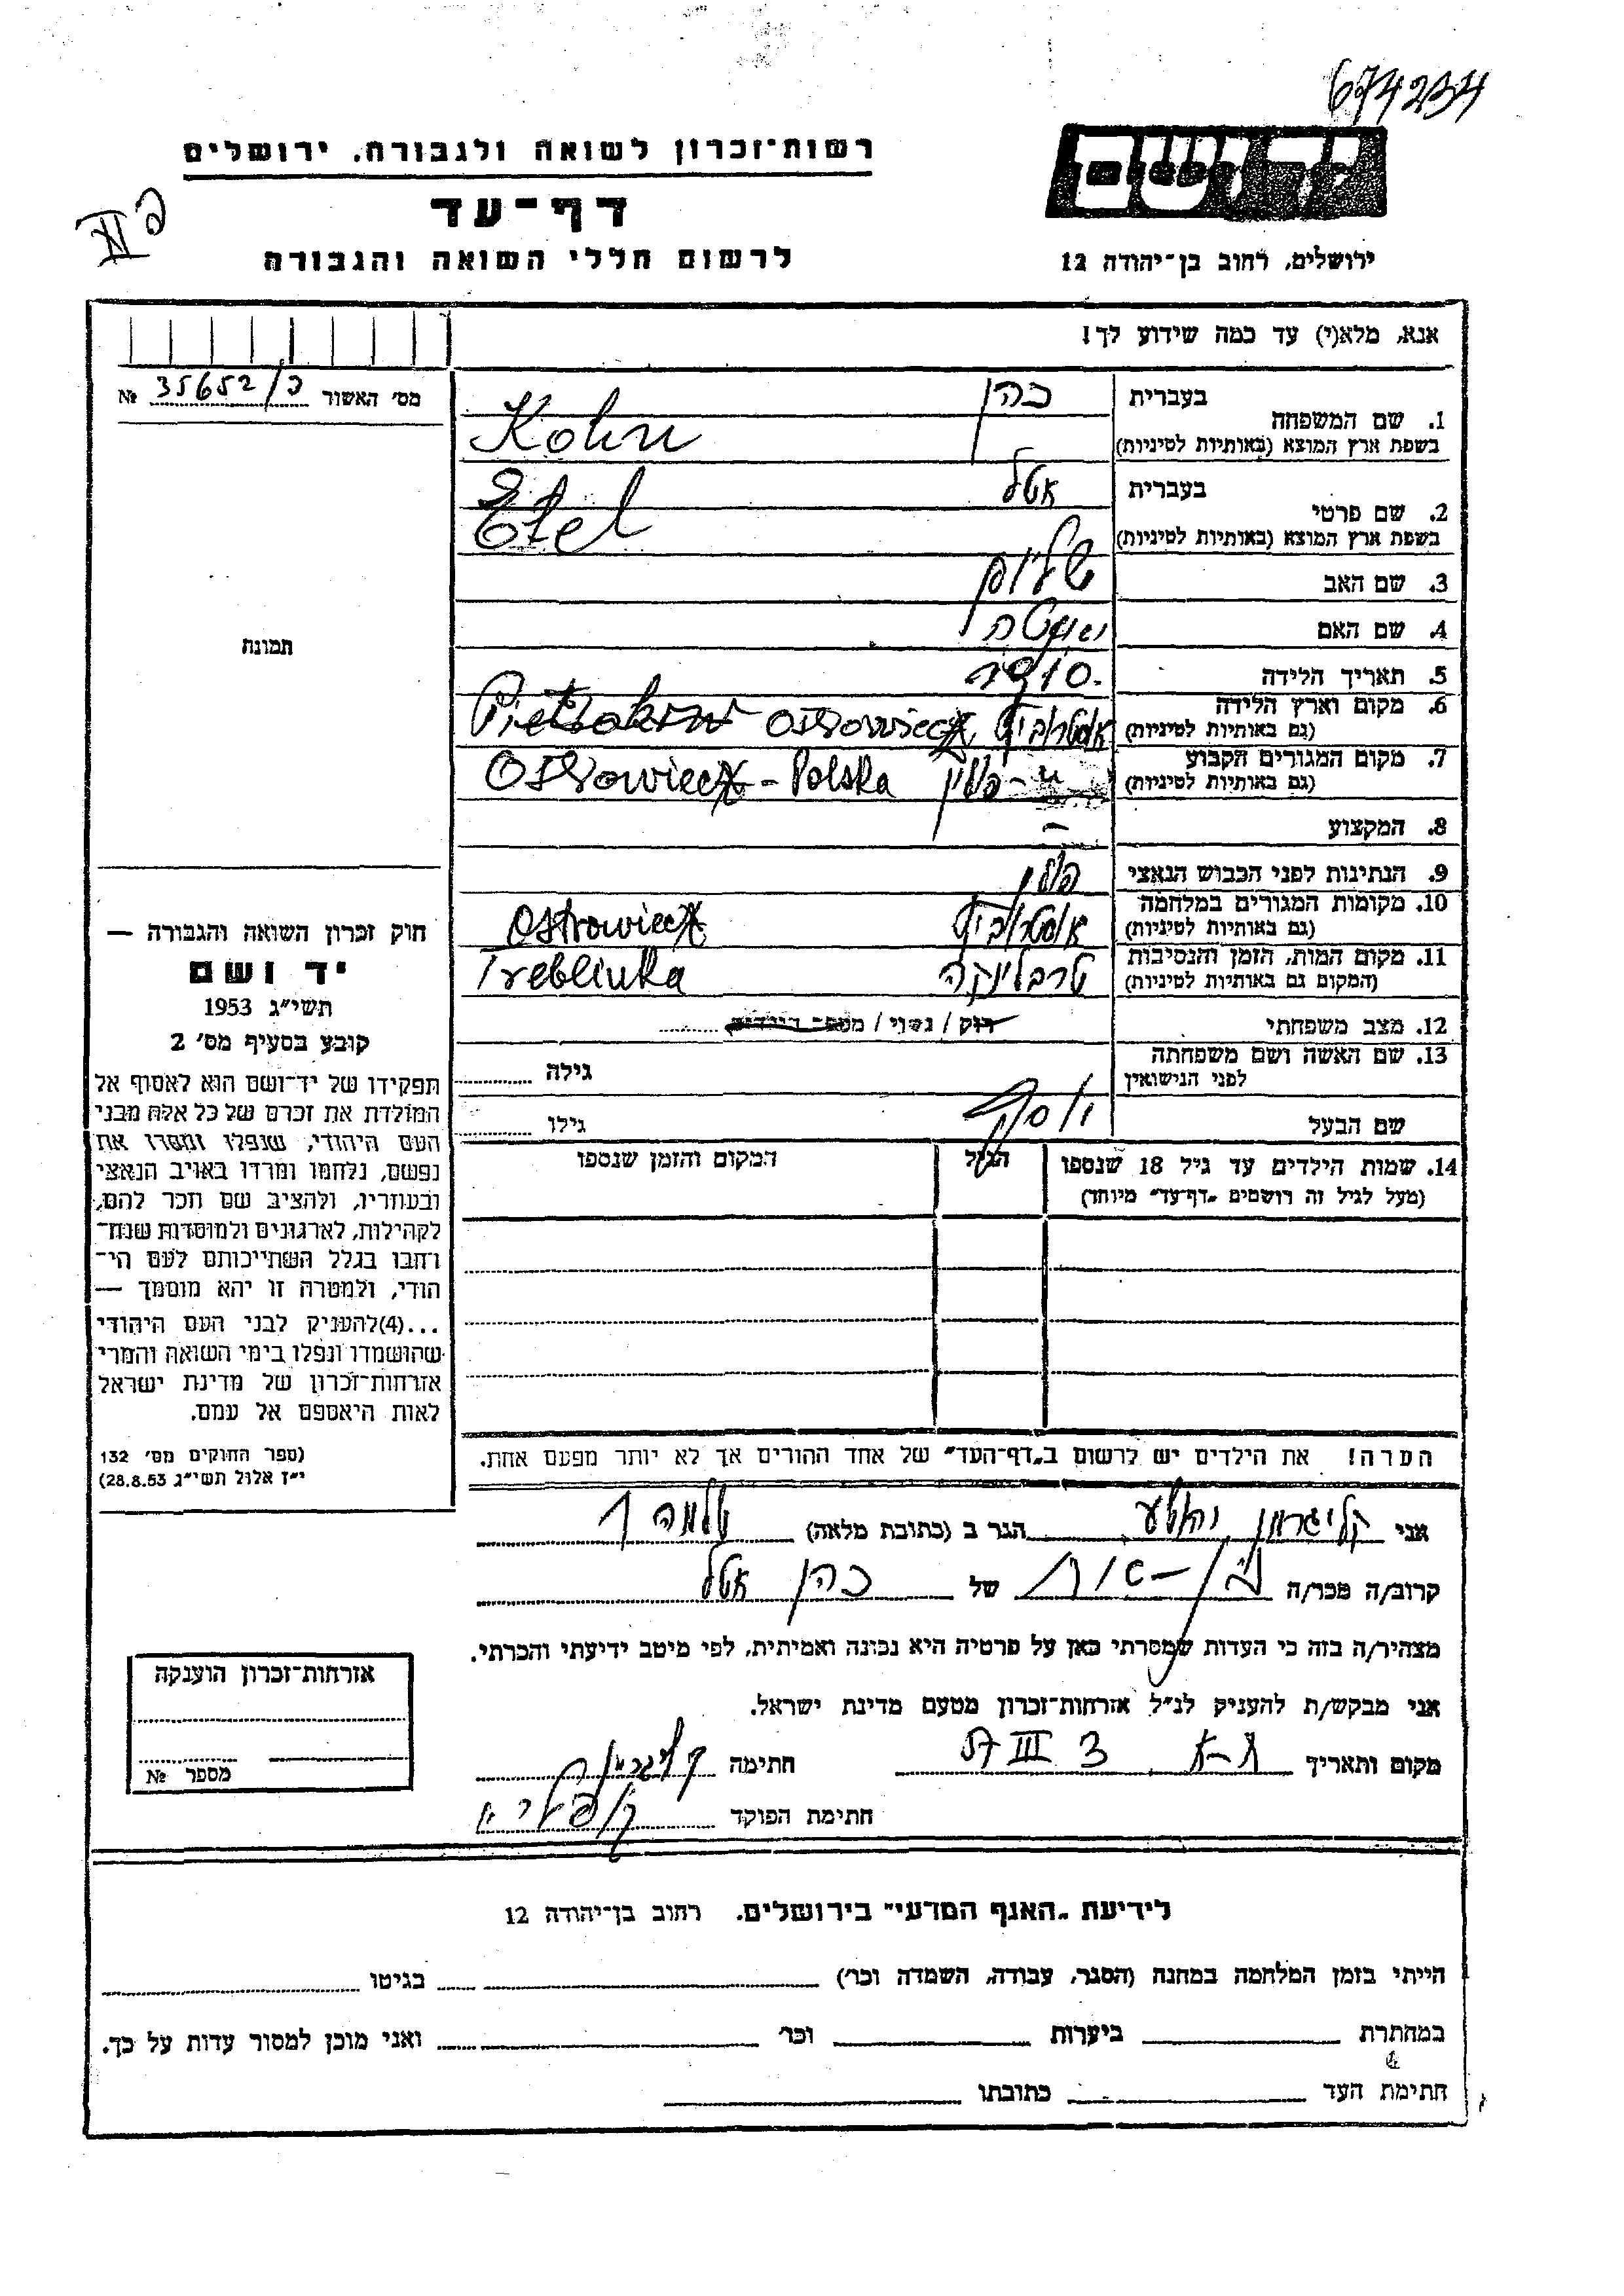 674234
רשות־זכרון לשואה ולגבורה, ירושלים
יד ושם
דף־עד
לרשום חללי השואה והגבורה
ירושלים, רחוב בן־יהודה 12
אנא, מלא(י) עד כמה שידוע לך!
מס׳ האשור 35652/כ №
1. שם המשפחה בעברית כהן
בשפת ארץ המוצא (באותיות לטיניות) Kohn
2. שם פרטי בעברית אטל
בשפת ארץ המוצא (באותיות לטיניות) Etel
3. שם האב שלום
4. שם האם
5. תאריך הלידה 1910
6. מקום וארץ הלידה
(גם באותיות לטיניות) Ostrowiec
7. מקום המגורים הקבוע
(גם באותיות לטיניות) Ostrowiec - Polska פולין
8. המקצוע –
9. הנתינות לפני הכבוש הנאצי פולין
10. מקומות המגורים במלחמה
(גם באותיות לטיניות) Ostrowiec
11. מקום המות, הזמן והנסיבות טרבלינקה
(המקום גם באותיות לטיניות) Treblinka
12. מצב משפחתי רוק / נשוי / מספר הילדים
13. שם האשה ושם משפחתה
לפני הנישואין גילה
שם הבעל יוסף גילו
14. שמות הילדים עד גיל 18 שנספו הגיל המקום והזמן שנספו
(מעל לגיל זה רושמים „דף־עד״ מיוחד)
הערה! את הילדים יש לרשום ב„דף־העד״ של אחד ההורים אך לא יותר מפעם אחת.
תמונה
חוק זכרון השואה והגבורה —
יד ושם
תשי״ג 1953
קובע בסעיף מס׳ 2
תפקידו של יד־ושם הוא לאסוף אל
המולדת את זכרם של כל אלה מבני
העם היהודי, שנפלו ומסרו את
נפשם, נלחמו ומרדו באויב הנאצי
ובעוזריו, ולהציב שם וזכר להם,
לקהילות, לארגונים ולמוסדות שנח־
רבו בגלל השתייכותם לעם הי־
הודי, ולמטרה זו יהא מוסמך —
...(4)להעניק לבני העם היהודי
שהושמדו ונפלו בימי השואה והמרי
אזרחות־זכרון של מדינת ישראל
לאות היאספם אל עמם.
(ספר החוקים מס׳ 132
י״ז אלול תשי״ג 28.8.53)
אני קליגרמן הגר ב (כתובת מלאה)
קרוב/ה מכר/ה של כהן אטל
מצהיר/ה בזה כי העדות שמסרתי כאן על פרטיה היא נכונה ואמיתית, לפי מיטב ידיעתי והכרתי.
אני מבקש/ת להעניק לנ״ל אזרחות־זכרון מטעם מדינת ישראל.
מקום ותאריך ת-א 3 III 57 חתימה קליגרמן
חתימת הפוקד
אזרחות־זכרון הוענקה
מספר №
לידיעת „האגף המדעי״ בירושלים, רחוב בן־יהודה 12
הייתי בזמן המלחמה במחנה (הסגר, עבודה, השמדה וכר׳) בגיטו
במחתרת ביערות וכר׳ ואני מוכן למסור עדות על כך.
חתימת העד כתובתו